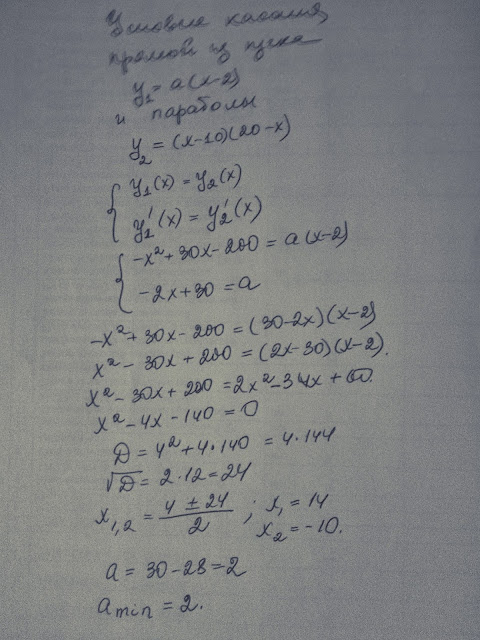 Условие касания
прямой из пучка
y₁ = a(x-2)
и параболы
y₂ = (x-10)(20-x)
{ y₁(x) = y₂(x)
y₁'(x) = y₂'(x)
{ -x²+30x-200 = a(x-2)
-2x+30 = a
-x²+30x-200 = (30-2x)(x-2)
x²-30x+200 = (2x-30)(x-2).
x²-30x+200 = 2x²-34x+60.
x²-4x-140 = 0
D = 4²+4·140 = 4·144
√D = 2·12 = 24
x₁,₂ = (4 ± 24)/2 ; x₁ = 14
x₂ = -10.
a = 30-28 = 2
a min = 2.